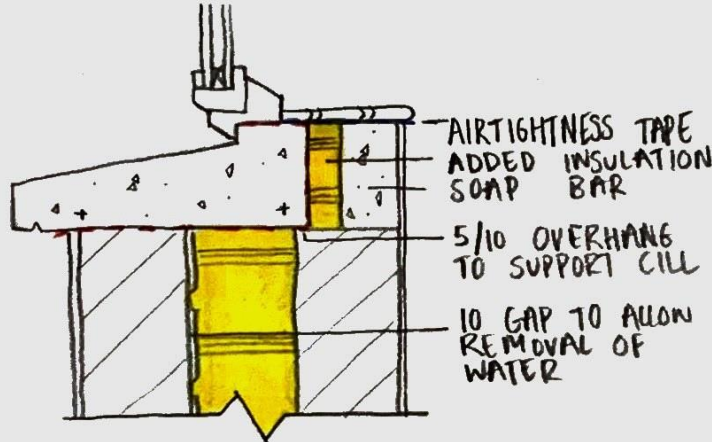 AIRTIGHTNESS TAPE
ADDED INSULATION
SOAP BAR
5/10 OVERHANG
TO SUPPORT CILL
10 GAP TO ALLOW
REMOVAL OF
WATER